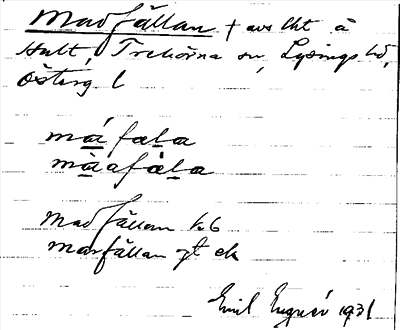 Madfällan + avs lht å
Hult, Trehörna sn, Lysings hd,
Österg l
má fæla
màafàla
Madfällan kb
marfällan gt ek
Emil 1931